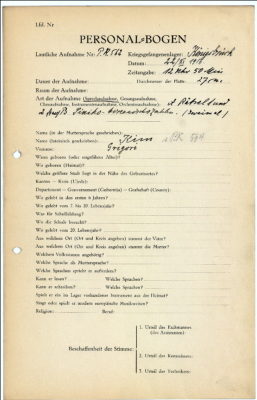 Lfd. Nr
PERSONAL-BOGEN
Lautliche Aufnahme Nr: PK 562 Kriegsgefangenenlager: Königsbrück
Datum:
Zeitangabe: 12 Uhr 50 Min
Dauer der Aufnahme: Durchmesser der Platte: 27 cm
Raum der Aufnahme:
Art der Aufnahme (Sprechaufnahme, Gesangsaufnahme,
Choraufnahme, Instrumentenaufnahme, Orchesteraufnahme):
Name (in der Muttersprache geschrieben):
Name (lateinisch geschrieben): Kim
Vorname: Grigori
Wann geboren (oder ungefähres Alter)?
Wo geboren (Heimat)?
Welche größere Stadt liegt in der Nähe des Geburtsortes?
Kanton – Kreis (Ujezd):
Departement – Gouvernement (Gubernija) – Grafschaft (County):
Wo gelebt in den ersten 6 Jahren?
Wo gelebt vom 7. bis 20. Lebensjahr?
Was für Schulbildung?
Wo die Schule besucht?
Wo gelebt vom 20. Lebensjahr?
Aus welchem Ort (Ort und Kreis angeben) stammt der Vater?
Aus welchem Ort (Ort und Kreis angeben) stammt die Mutter?
Welchem Volksstamm angehörig?
Welche Sprache als Muttersprache?
Welche Sprachen spricht er außerdem?
Kann er lesen? Welche Sprachen?
Kann er schreiben? Welche Sprachen?
Spielt er ein im Lager vorhandenes Instrument aus der Heimat?
Singt oder spielt er modern europäische Musikweisen?
Religion: Beruf:
Beschaffenheit der Stimme:
1. Urteil des Fachmannes
(des Assistenten):
2. Urteil des Kommissars:
3. Urteil des Technikers: